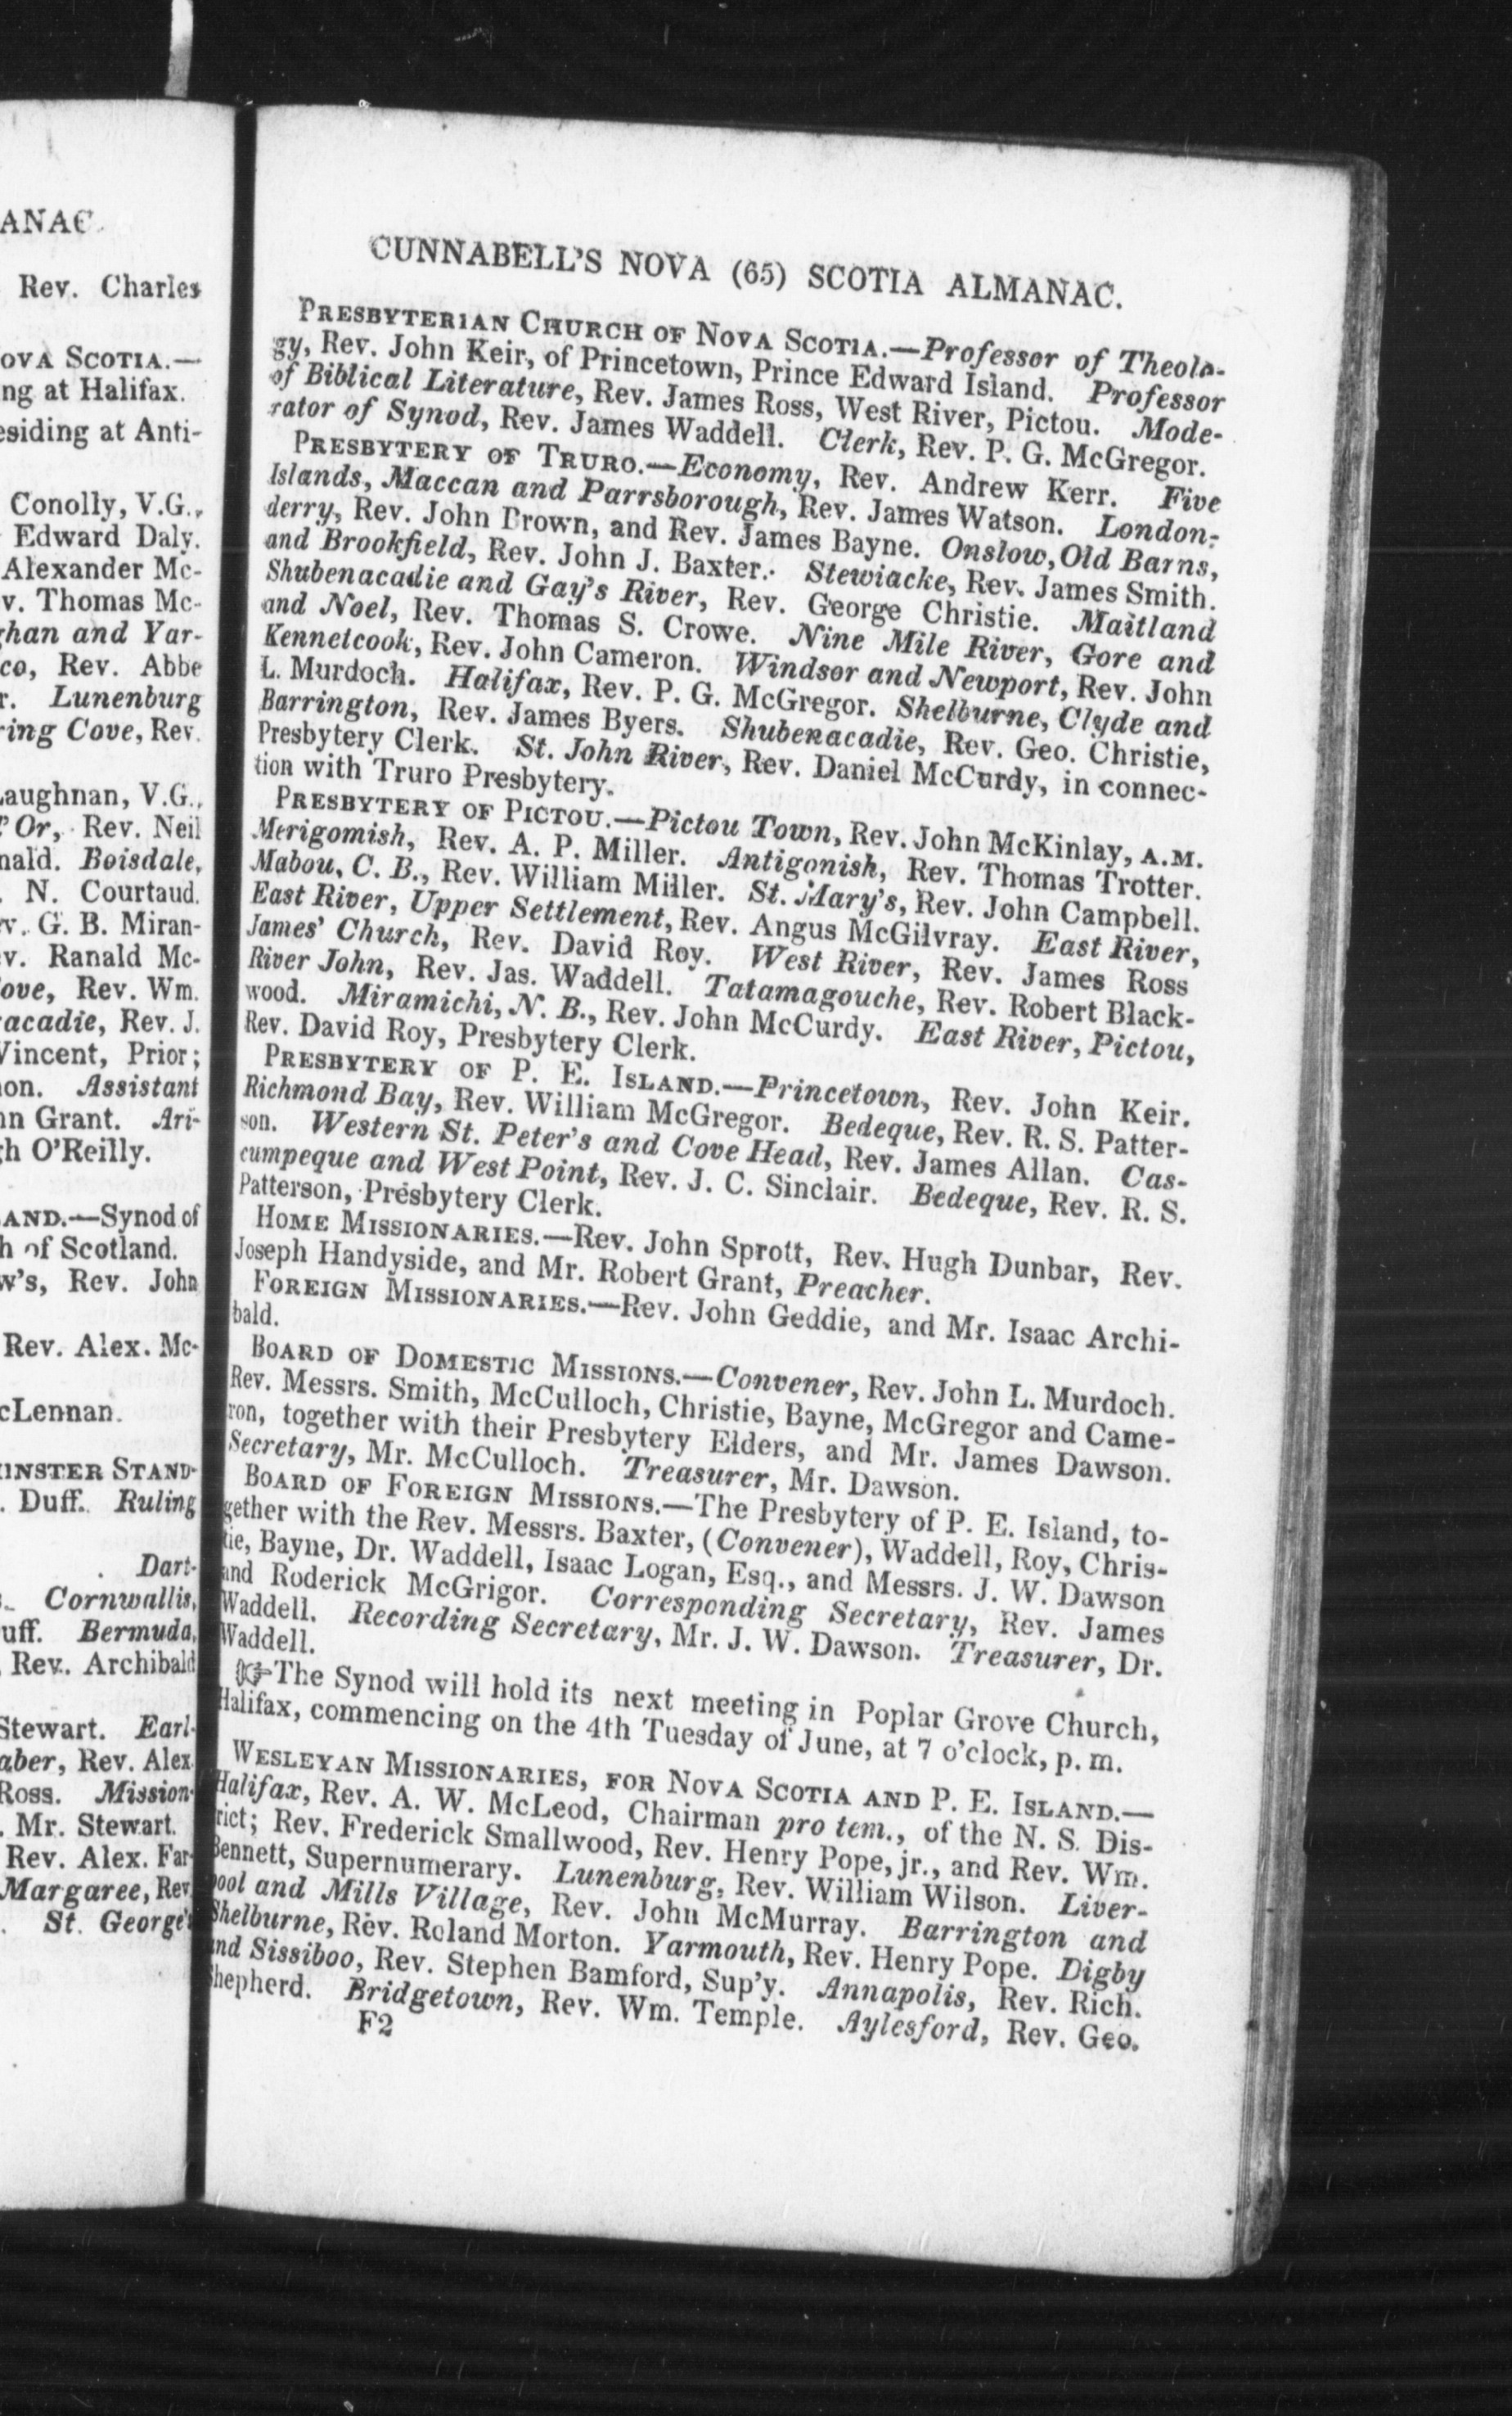 ANAC
Rev. Charles
OVA SCOTIA.—
ng at Halifax.
esiding at Anti-
Conolly, V.G.,
Edward Daly.
Alexander Mc-
v. Thomas Mc-
ghan and Yar-
co, Rev. Abbe
r. Lunenburg
ring Cove, Rev.
Laughnan, V.G.,
' Or, Rev. Neil
nald. Boisdale,
. N. Courtaud.
v. G. B. Miran-
v. Ranald Mc-
ove, Rev. Wm.
acadie, Rev. J.
Vincent, Prior;
on. Assistant
nn Grant. Ari-
gh O'Reilly.
AND.—Synod of
h of Scotland.
w's, Rev. John
Rev. Alex. Mc-
cLennan.
INSTER STAND-
. Duff. Ruling
. Dart-
s. Cornwallis,
uff. Bermuda,
Rev. Archibald
Stewart. Earl-
aber, Rev. Alex.
Ross. Mission-
. Mr. Stewart.
Rev. Alex. Far-
Margaree, Rev.
. St. George's
CUNNABELL'S NOVA (65) SCOTIA ALMANAC.
PRESBYTERIAN CHURCH OF NOVA SCOTIA.—Professor of Theolo-
gy, Rev. John Keir, of Princetown, Prince Edward Island. Professor
of Biblical Literature, Rev. James Ross, West River, Pictou. Mode-
rator of Synod, Rev. James Waddell. Clerk, Rev. P. G. McGregor.
PRESBYTERY OF TRURO.—Economy, Rev. Andrew Kerr. Five
Islands, Maccan and Parrsborough, Rev. James Watson. London-
derry, Rev. John Brown, and Rev. James Bayne. Onslow, Old Barns,
and Brookfield, Rev. John J. Baxter. Stewiacke, Rev. James Smith.
Shubenacadie and Gay's River, Rev. George Christie. Maitland
and Noel, Rev. Thomas S. Crowe. Nine Mile River, Gore and
Kennetcook, Rev. John Cameron. Windsor and Newport, Rev. John
L. Murdoch. Halifax, Rev. P. G. McGregor. Shelburne, Clyde and
Barrington, Rev. James Byers. Shubenacadie, Rev. Geo. Christie,
Presbytery Clerk. St. John River, Rev. Daniel McCurdy, in connec-
tion with Truro Presbytery.
PRESBYTERY OF PICTOU.—Pictou Town, Rev. John McKinlay, A.M.
Merigomish, Rev. A. P. Miller. Antigonish, Rev. Thomas Trotter.
Mabou, C. B., Rev. William Miller. St. Mary's, Rev. John Campbell.
East River, Upper Settlement, Rev. Angus McGilvray. East River,
James' Church, Rev. David Roy. West River, Rev. James Ross
River John, Rev. Jas. Waddell. Tatamagouche, Rev. Robert Black-
wood. Miramichi, N. B., Rev. John McCurdy. East River, Pictou,
Rev. David Roy, Presbytery Clerk.
PRESBYTERY OF P. E. ISLAND.—Princetown, Rev. John Keir.
Richmond Bay, Rev. William McGregor. Bedeque, Rev. R. S. Patter-
son. Western St. Peter's and Cove Head, Rev. James Allan. Cas-
cumpeque and West Point, Rev. J. C. Sinclair. Bedeque, Rev. R. S.
Patterson, Presbytery Clerk.
HOME MISSIONARIES.—Rev. John Sprott, Rev. Hugh Dunbar, Rev.
Joseph Handyside, and Mr. Robert Grant, Preacher.
FOREIGN MISSIONARIES.—Rev. John Geddie, and Mr. Isaac Archi-
bald.
BOARD OF DOMESTIC MISSIONS.—Convener, Rev. John L. Murdoch.
Rev. Messrs. Smith, McCulloch, Christie, Bayne, McGregor and Came-
ron, together with their Presbytery Elders, and Mr. James Dawson.
Secretary, Mr. McCulloch. Treasurer, Mr. Dawson.
BOARD OF FOREIGN MISSIONS.—The Presbytery of P. E. Island, to-
gether with the Rev. Messrs. Baxter, (Convener), Waddell, Roy, Chris-
tie, Bayne, Dr. Waddell, Isaac Logan, Esq., and Messrs. J. W. Dawson
and Roderick McGrigor. Corresponding Secretary, Rev. James
Waddell. Recording Secretary, Mr. J. W. Dawson. Treasurer, Dr.
Waddell.
☞The Synod will hold its next meeting in Poplar Grove Church,
Halifax, commencing on the 4th Tuesday of June, at 7 o'clock, p. m.
WESLEYAN MISSIONARIES, FOR NOVA SCOTIA AND P. E. ISLAND.—
Halifax, Rev. A. W. McLeod, Chairman pro tem., of the N. S. Dis-
rict; Rev. Frederick Smallwood, Rev. Henry Pope, jr., and Rev. Wm.
Bennett, Supernumerary. Lunenburg, Rev. William Wilson. Liver-
pool and Mills Village, Rev. John McMurray. Barrington and
Shelburne, Rev. Roland Morton. Yarmouth, Rev. Henry Pope. Digby
and Sissiboo, Rev. Stephen Bamford, Sup'y. Annapolis, Rev. Rich.
Shepherd. Bridgetown, Rev. Wm. Temple. Aylesford, Rev. Geo.
F2